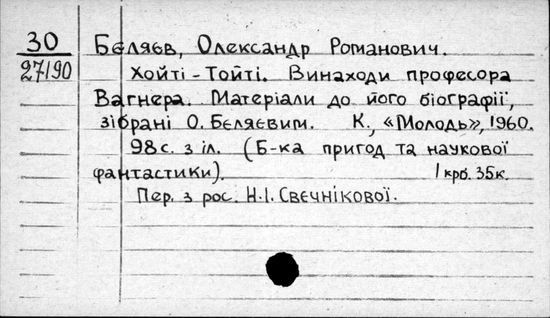 30
27190
Бєляєв, Олександр Романович.
Хойті-Тойті. Винаходи професора
Вагнера. Матеріали до його біографії,
зібрані О. Бєляєвим. К., «Молодь», 1960.
98с. з іл. (Б-ка пригод та наукової
фантастики). 1 крб. 35к.
Пер. з рос. Н.І. Свєчнікової.